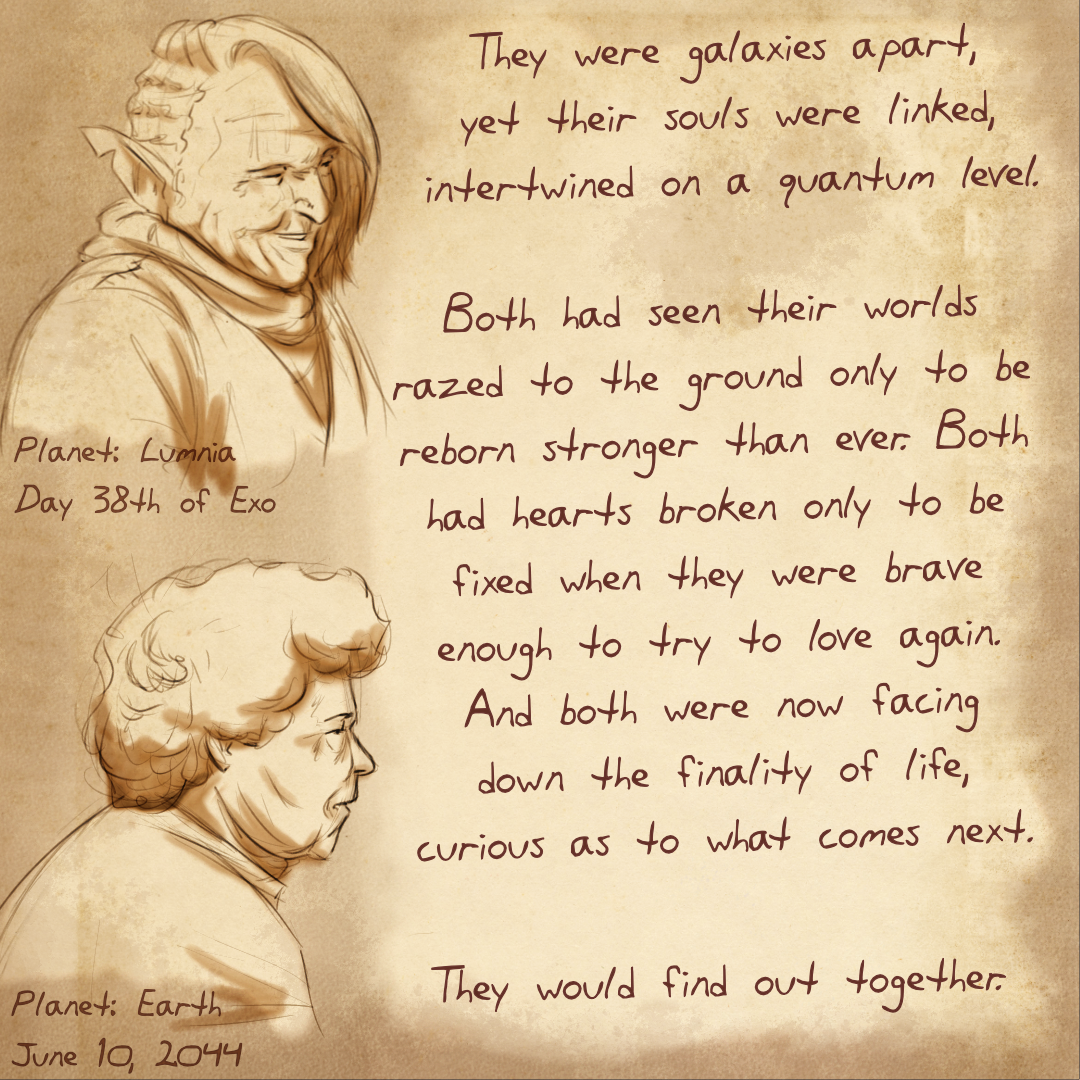 They were galaxies apart,
yet their souls were linked,
intertwined on a quantum level.
Both had seen their worlds
razed to the ground only to be
reborn stronger than ever. Both
had hearts broken only to be
fixed when they were brave
enough to try to love again.
And both were now facing
down the finality of life,
curious as to what comes next.
They would find out together.
Planet: Lumnia
Day 38th of Exo
Planet: Earth
June 10, 2044